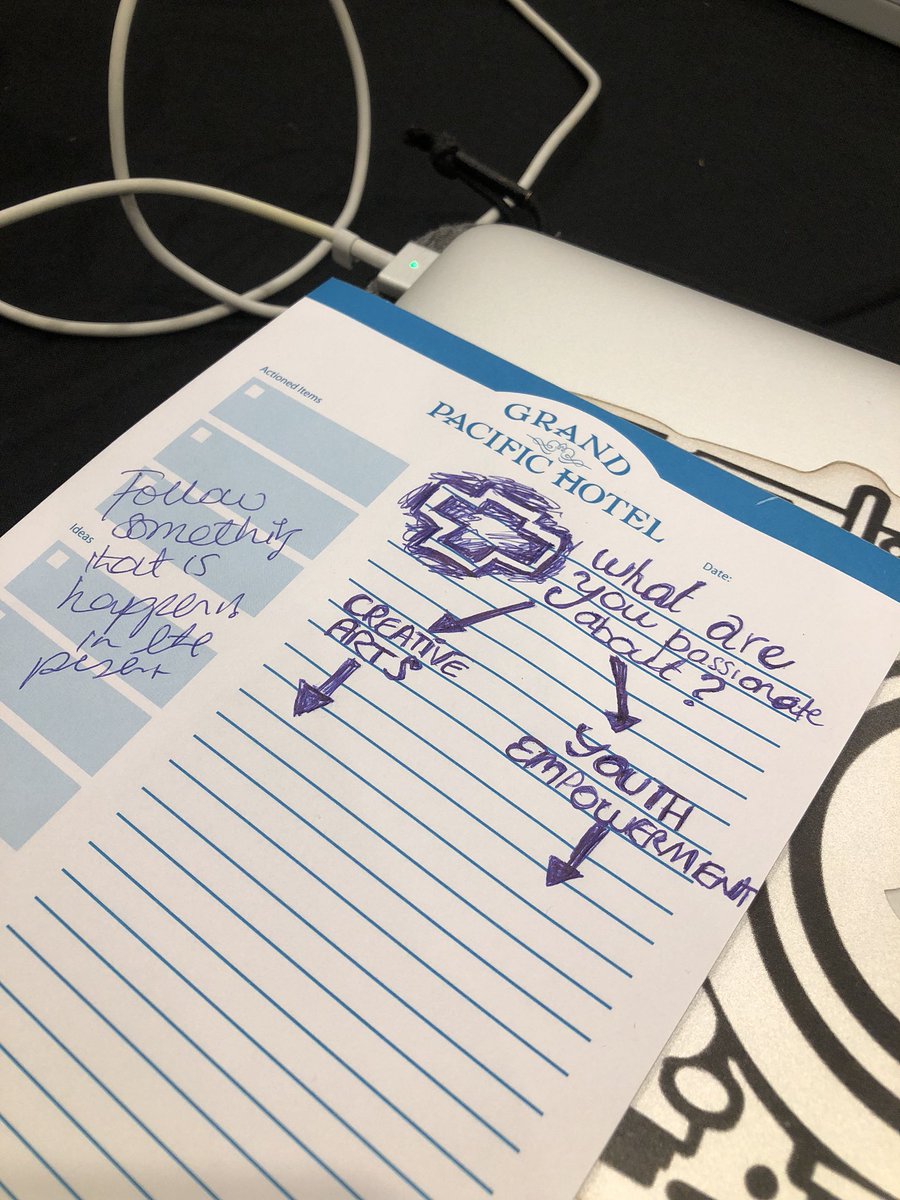 GRAND
PACIFIC HOTEL
Actioned Items
Date:
Ideas
Follow
something
that is
happenin
in the
present
What are
you passionate
about?
CREATIVE
ARTS
YOUTH
EMPOWERMENT